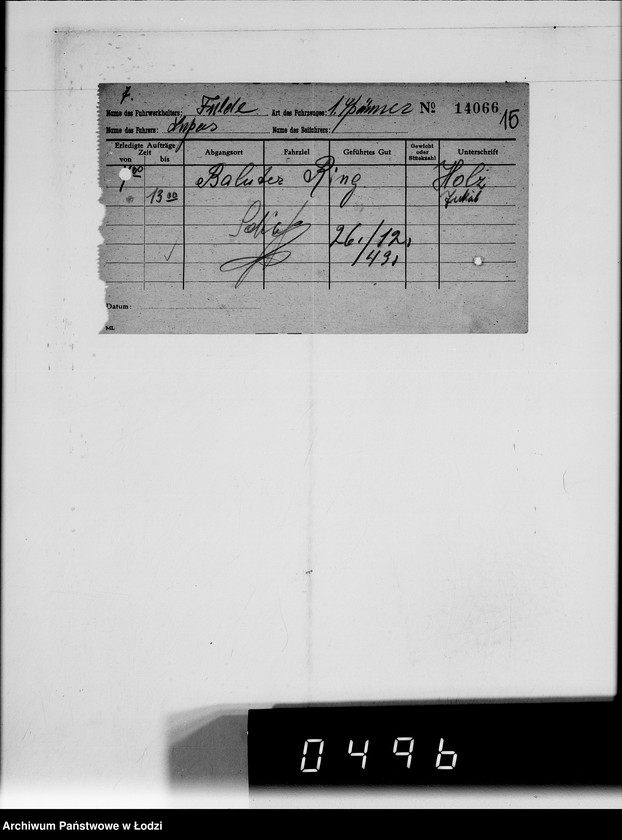 7.
Name des Fuhrwerkhalters: Fulde Art des Fahrzeuges: 1. Spänner № 14066 15
Name des Fahrers: Lupas Name des Beifahrers:
Erledigte Aufträge
Zeit
von bis Abgangsort Fahrziel Geführtes Gut Gewicht oder Stückzahl Unterschrift
00 Baluter Ring Holz
13 00
26./12.
/43.
Datum:
ML.
0496
Archiwum Państwowe w Łodzi